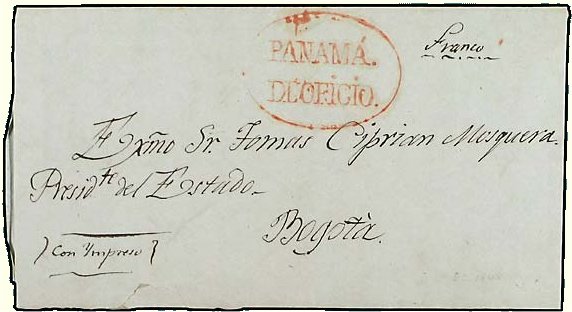 PANAMÁ.
DE OFICIO.
Franco
Exmo Sr. Tomas Ciprian Mosquera.
Presid.te del Estado
Bogotà.
Con Ympreso